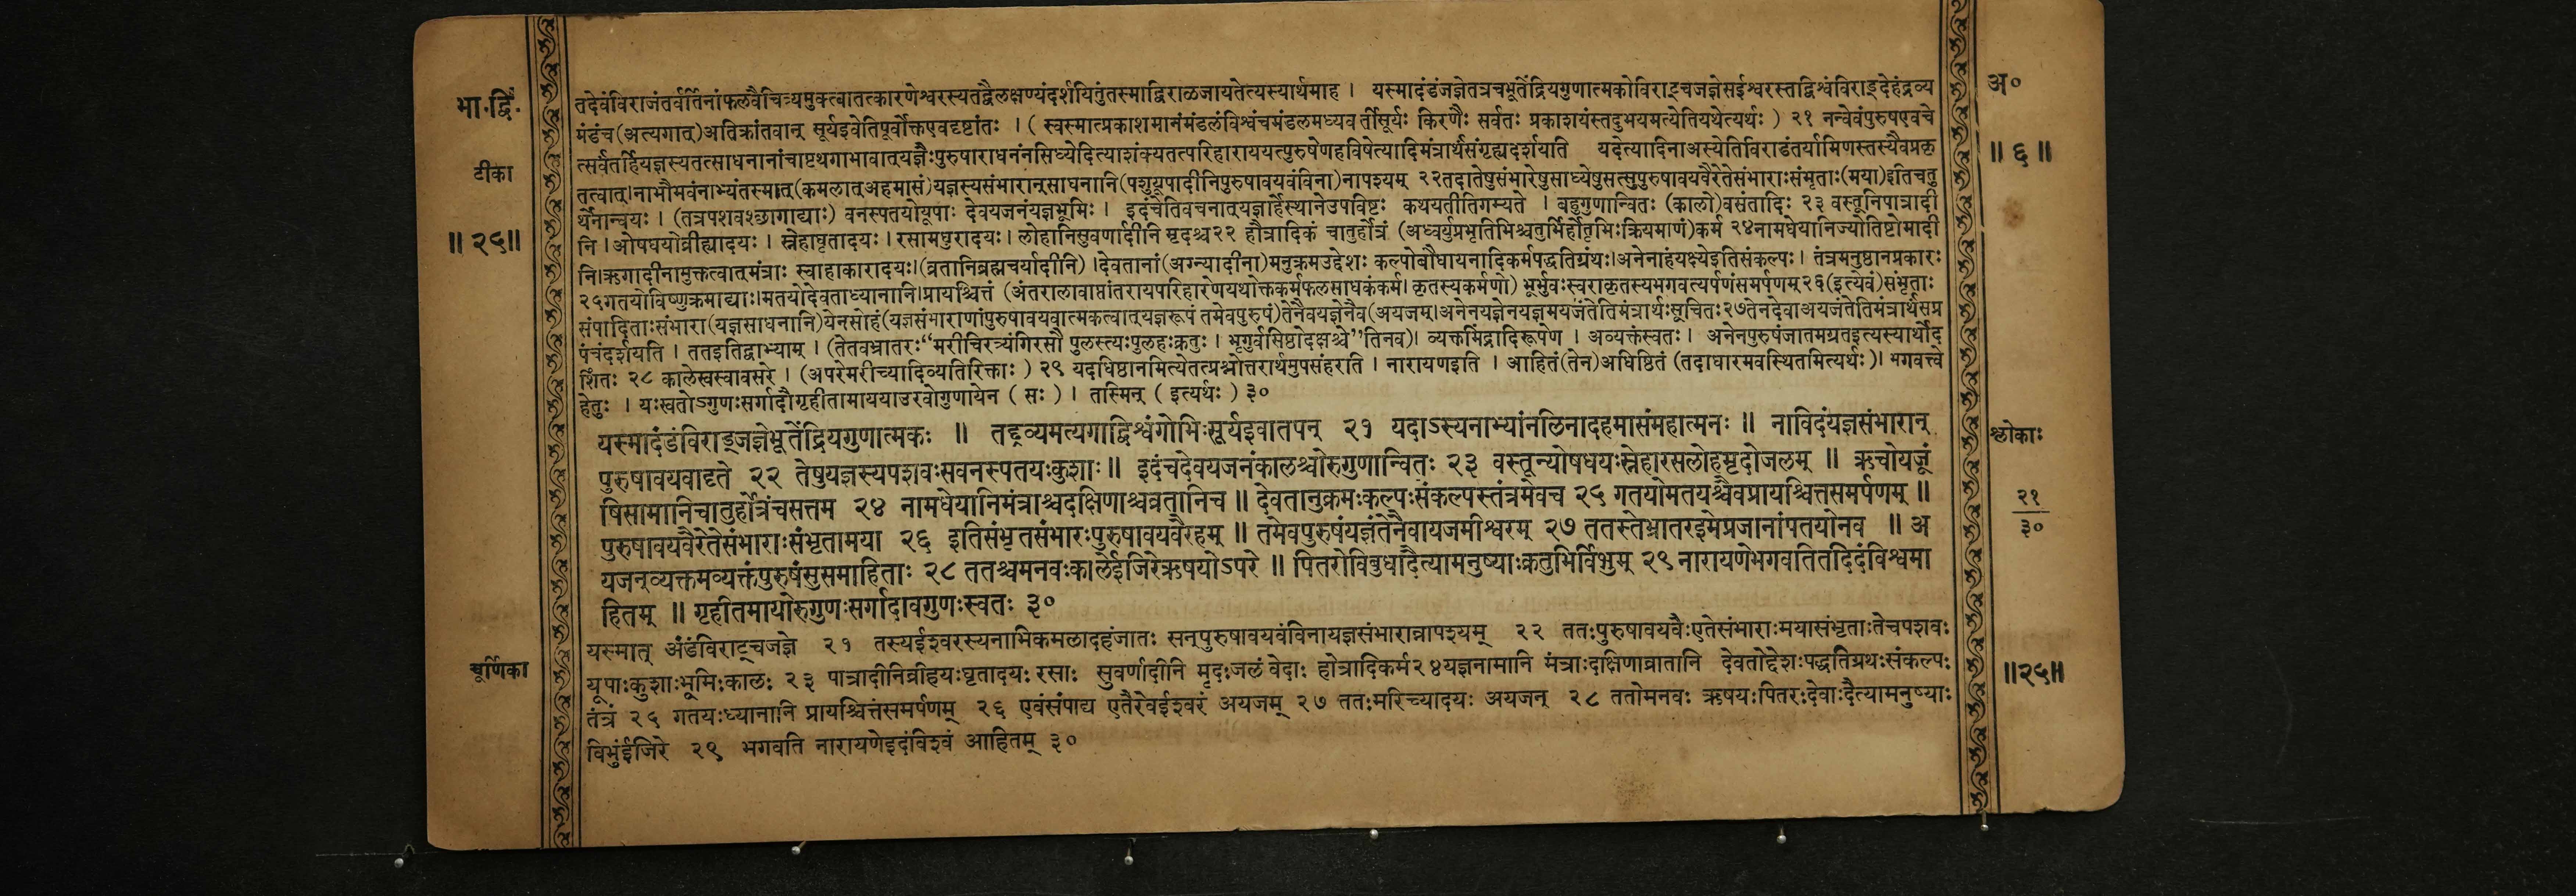 भा.द्वि.
टीका
॥२५॥
तदेवंविराजंतर्वर्तिनांफलवैचित्र्यमुक्त्वातत्कारणेश्वरस्यतद्वैलक्षण्यंदर्शयितुंतस्माद्विराळजायतेत्यस्यार्थमाह । यस्मादंडंजज्ञेतत्रचभूतेंद्रियगुणात्मकोविराट्चजज्ञेसईश्वरस्तद्विश्वंविराड्देहंद्रव्य
मंडंच(अत्यगात्)अतिक्रांतवान् सूर्यइवेतिपूर्वोक्तएवदृष्टांतः । ( स्वस्मात्प्रकाशमानंमंडलंविश्वंचमंडलमध्यवर्तीसूर्यः किरणैः सर्वतः प्रकाशयंस्तदुभयमत्येतियथेत्यर्थः ) २१ नन्वेवंपुरुषएवचे
त्सर्वंतर्हियज्ञस्यतत्साधनानांचापृथगाभावात्यज्ञैःपुरुषाराधनंनसिध्येदित्याशंक्यतत्परिहाराययत्पुरुषेणहविषेत्यादिमंत्रार्थंसंगृह्यदर्शयति यदेत्यादिनाअस्येतिविराडंतर्यामिणस्तस्यैवप्रकृ
तत्वात्।नाभौभवंनाभ्यंतस्मात्(कमलात्अहमासं)यज्ञस्यसंभारान्साधनानि(पशुयूपादीनिपुरुषावयवंविना)नापश्यम् २२तदातेषुसंभारेषुसाध्येषुसत्सुपुरुषावयवैरेतेसंभाराःसंभृताः(मया)इतिचतु
र्थेनान्वयः । (तत्रपशवश्छागाद्याः) वनस्पतयोयूपाः देवयजनंयज्ञभूमिः । इदंचेतिवचनात्यज्ञार्हेस्थानेउपविष्टः कथयतीतिगम्यते । बहुगुणान्वितः (कालो)वसंतादिः २३ वस्तूनिपात्रादी
नि ।ओषधयोव्रीह्यादयः । स्नेहाघृतादयः । रसामधुरादयः। लोहानिसुवर्णादीनि मृदश्च२२ हौत्रादिकं चातुर्होत्रं (अध्वर्युप्रभृतिभिश्चतुर्भिर्होतृभिःक्रियमाणं)कर्म २४नामधेयानिज्योतिष्टोमादी
नि।ऋगादीनामुक्तत्वात्मंत्राः स्वाहाकारादयः।(व्रतानिब्रह्मचर्यादीनि) ।देवतानां(अग्न्यादीनां)मनुक्रमउद्देशः कल्पोबौधायनादिकर्मपद्धतिग्रंथः।अनेनाहंयक्ष्येइतिसंकल्पः। तंत्रमनुष्ठानप्रकारः
२५गतयोविष्णुक्रमाद्याः।मतयोदेवताध्यानानि।प्रायश्चित्तं (अंतरालावाप्तांतरायपरिहारेणयथोक्तकर्मफलसाधकंकर्म। कृतस्यकर्मणो) भूर्भुवःस्वराकृतस्यभगवत्यर्पणंसमर्पणम्२६(इत्येवं)संभृताः
संपादिताःसंभारा(यज्ञसाधनानि)येनसोहं(यज्ञसंभाराणांपुरुषावयवात्मकत्वात्यज्ञरूपं तमेवपुरुषं)तेनैवयज्ञेनैव(अयजम्।अनेनयज्ञेनयज्ञमयजंतेतिमंत्रार्थःसूचितः२७तेनदेवाअयजंतेतिमंत्रार्थंसप्र
पंचंदर्शयति । ततइतिद्वाभ्याम् । (तेतवभ्रातरः“मरीचिरत्र्यंगिरसौ पुलस्त्यःपुलहःक्रतुः । भृगुर्वसिष्ठोदक्षश्चे”तिनव)। व्यक्तमिंद्रादिरूपेण । अव्यक्तंस्वतः। अनेनपुरुषंजातमग्रतइत्यस्यार्थोद
र्शितः २८ कालेस्वस्वावसरे । (अपरेमरीच्यादिव्यतिरिक्ताः ) २९ यदधिष्ठानमित्येतत्प्रश्नोत्तरार्थमुपसंहरति । नारायणइति । आहितं(तेन)अधिष्ठितं (तदाधारमवस्थितमित्यर्थः)। भगवत्त्वे
हेतुः । यःस्वतोऽगुणःसर्गादौगृहीतामाययाउरवोगुणायेन ( सः ) । तस्मिन् ( इत्यर्थः ) ३०
यस्मादंडंविराड्जज्ञेभूतेंद्रियगुणात्मकः ॥ तद्द्रव्यमत्यगाद्विश्वंगोभिःसूर्यइवातपन् २१ यदाऽस्यनाभ्यांनलिनादहमासंमहात्मनः ॥ नाविदंयज्ञसंभारान्
पुरुषावयवादृते २२ तेषुयज्ञस्यपशवःसवनस्पतयःकुशाः ॥ इदंचदेवयजनंकालश्चोरुगुणान्वितः २३ वस्तून्योषधयःस्नेहारसलोहमृदोजलम् ॥ ऋचोयजूं
षिसामानिचातुर्होत्रंचसत्तम २४ नामधेयानिमंत्राश्चदक्षिणाश्चव्रतानिच ॥ देवतानुक्रमःकल्पःसंकल्पस्तंत्रमेवच २५ गतयोमतयश्चैवप्रायश्चित्तसमर्पणम् ॥
पुरुषावयवैरेतेसंभाराःसंभृतामया २६ इतिसंभृतसंभारःपुरुषावयवैरहम् ॥ तमेवपुरुषंयज्ञंतेनैवायजमीश्वरम् २७ ततस्तेभ्रातरइमेप्रजानांपतयोनव ॥ अ
यजन्व्यक्तमव्यक्तंपुरुषंसुसमाहिताः २८ ततश्चमनवःकालेईजिरेऋषयोऽपरे ॥ पितरोविबुधादैत्यामनुष्याःक्रतुभिर्विभुम् २९ नारायणेभगवतितदिदंविश्वमा
हितम् ॥ गृहीतमायोरुगुणःसर्गादावगुणःस्वतः ३०
चूर्णिका
यस्मात् अंडंविराट्चजज्ञे २१ तस्यईश्वरस्यनाभिकमलादहंजातः सन्पुरुषावयवंविनायज्ञसंभारान्नापश्यम् २२ ततःपुरुषावयवैःएतेसंभाराःमयासंभृताःतेचपशवः
यूपाःकुशाःभूमिःकालः २३ पात्रादीनिव्रीहयःघृतादयः रसाः सुवर्णादीनि मृदःजलं वेदाः होत्रादिकर्म२४यज्ञनामानि मंत्राःदक्षिणाव्रातानि देवतोद्देशःपद्धतिग्रथःसंकल्पः
तंत्रं २५ गतयःध्यानानि प्रायश्चित्तंसमर्पणम् २६ एवंसंपाद्य एतैरेवईश्वरं अयजम् २७ ततःमरिच्यादयः अयजन् २८ ततोमनवः ऋषयःपितरःदेवाःदैत्यामनुष्याः
विभुंईजिरे २९ भगवति नारायणेइदंविश्वं आहितम् ३०
अ०
॥६॥
श्लोकाः
२१
३०
॥२५॥